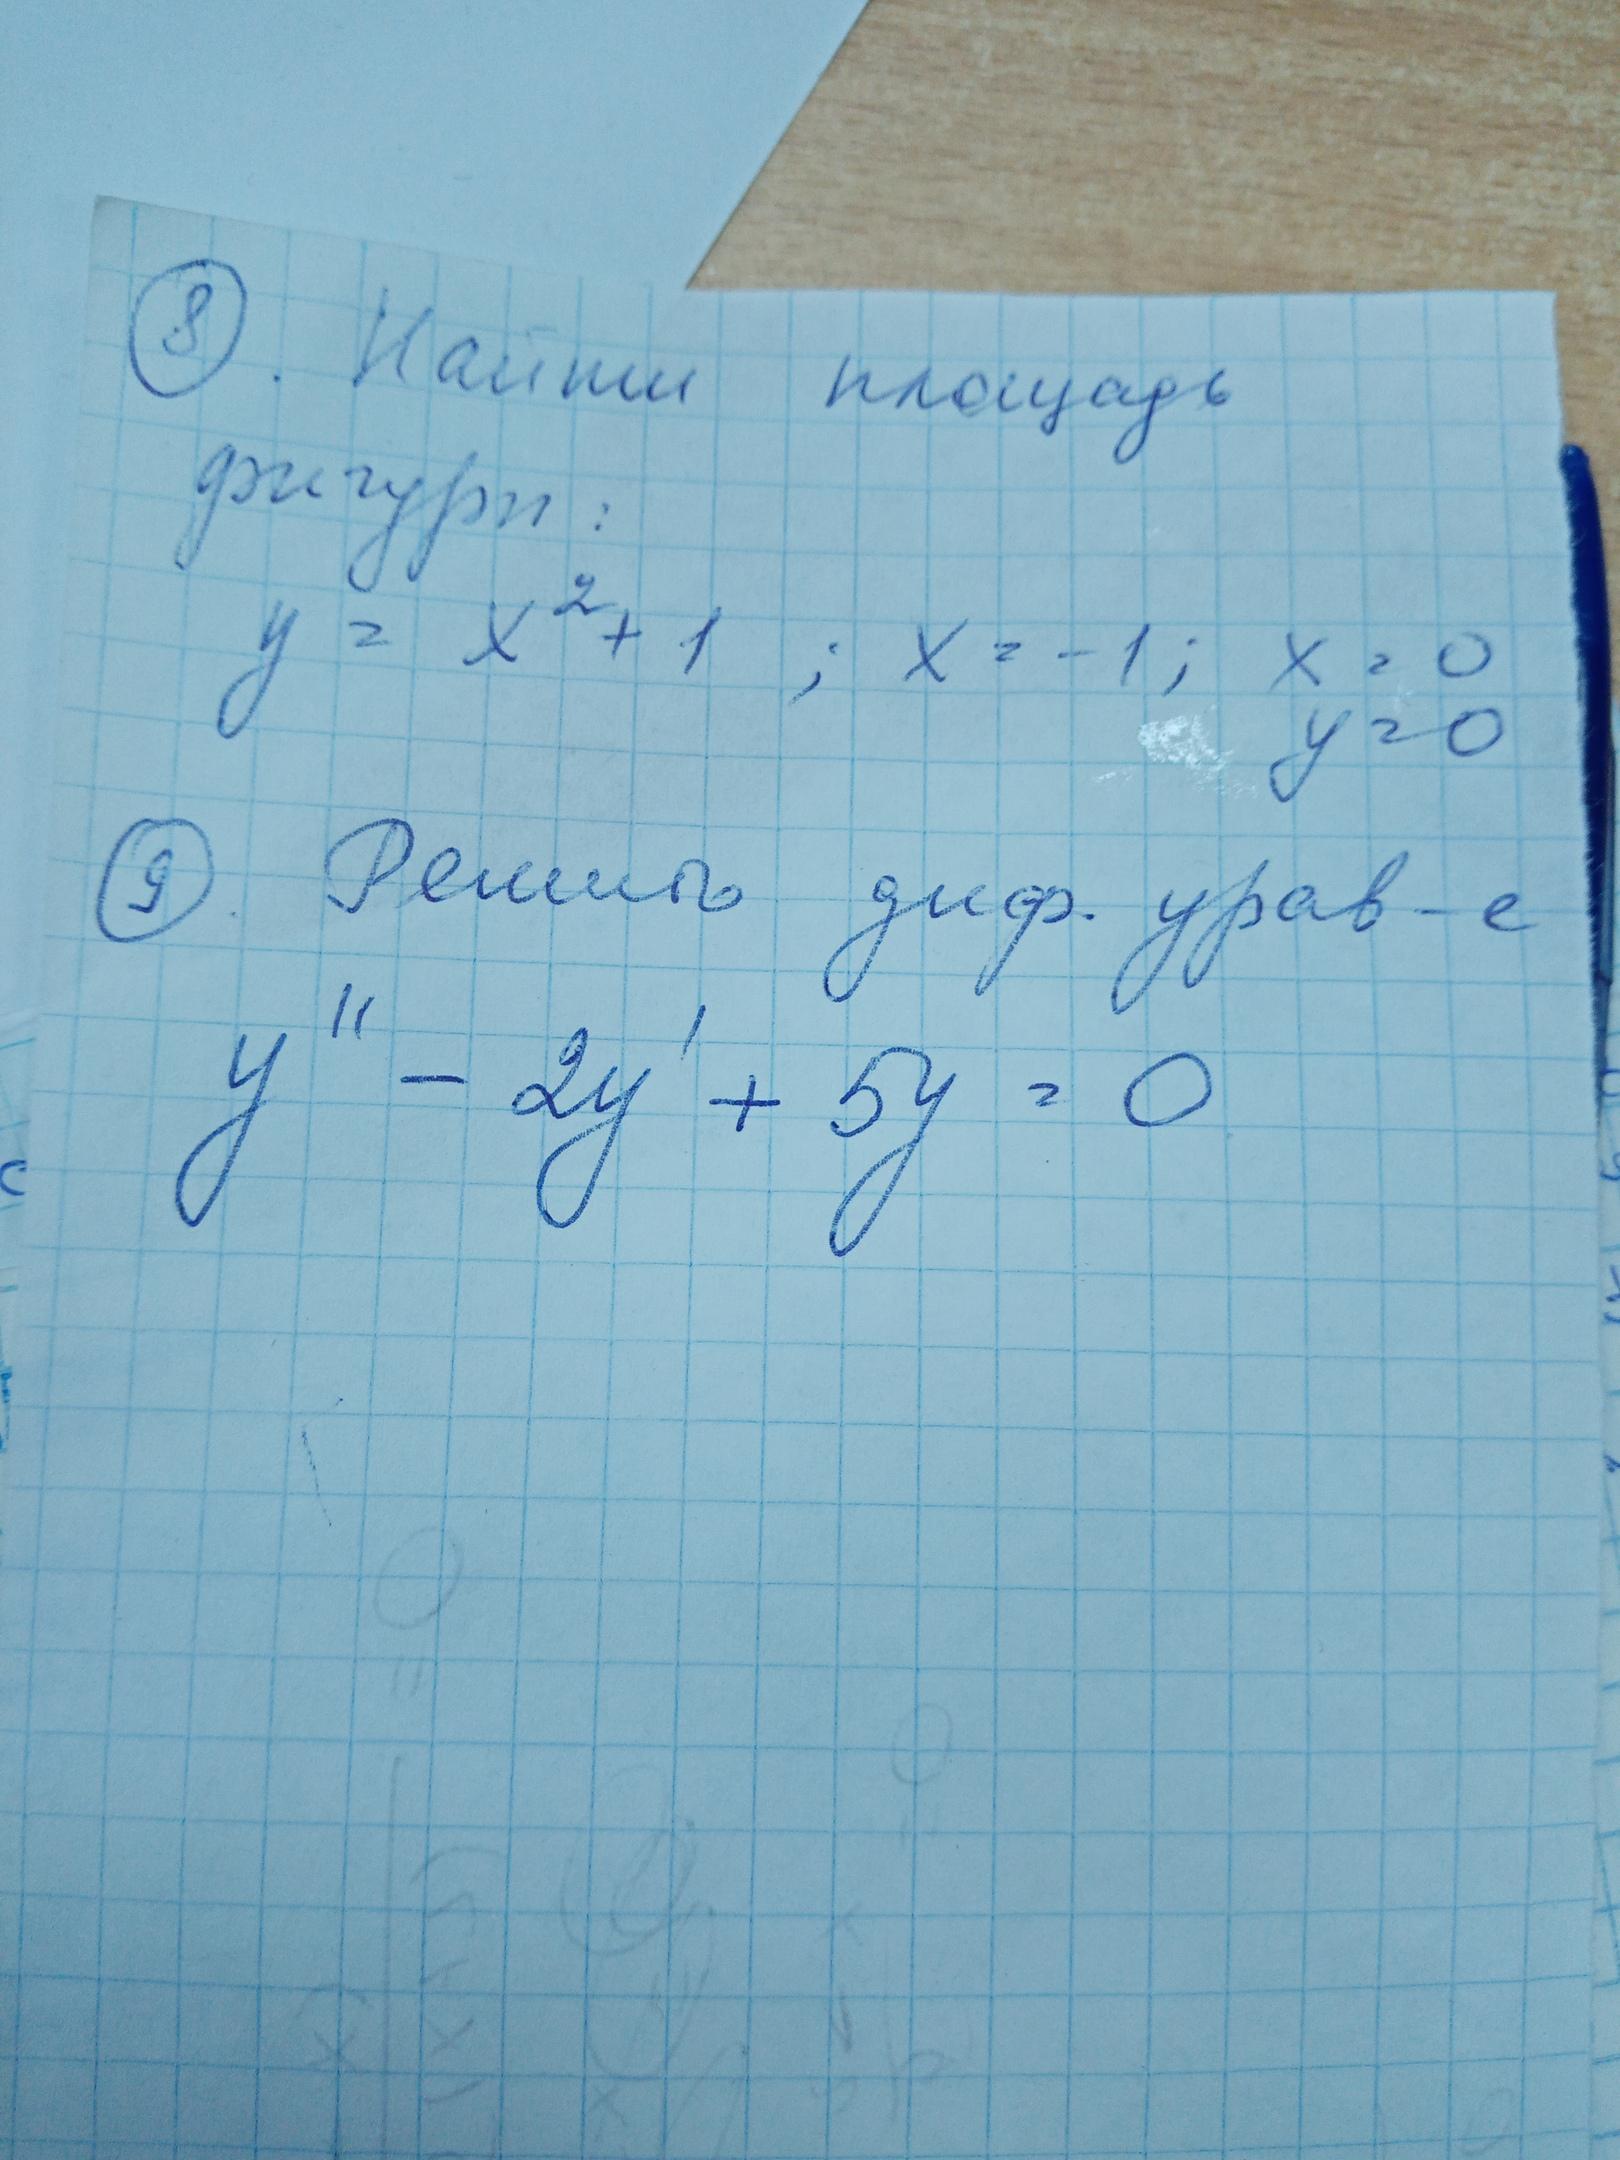 8. Найти площадь
фигуры:
y = x² + 1 ; x = -1; x = 0
y = 0
9. Решить диф. урав-е
y'' - 2y' + 5y = 0